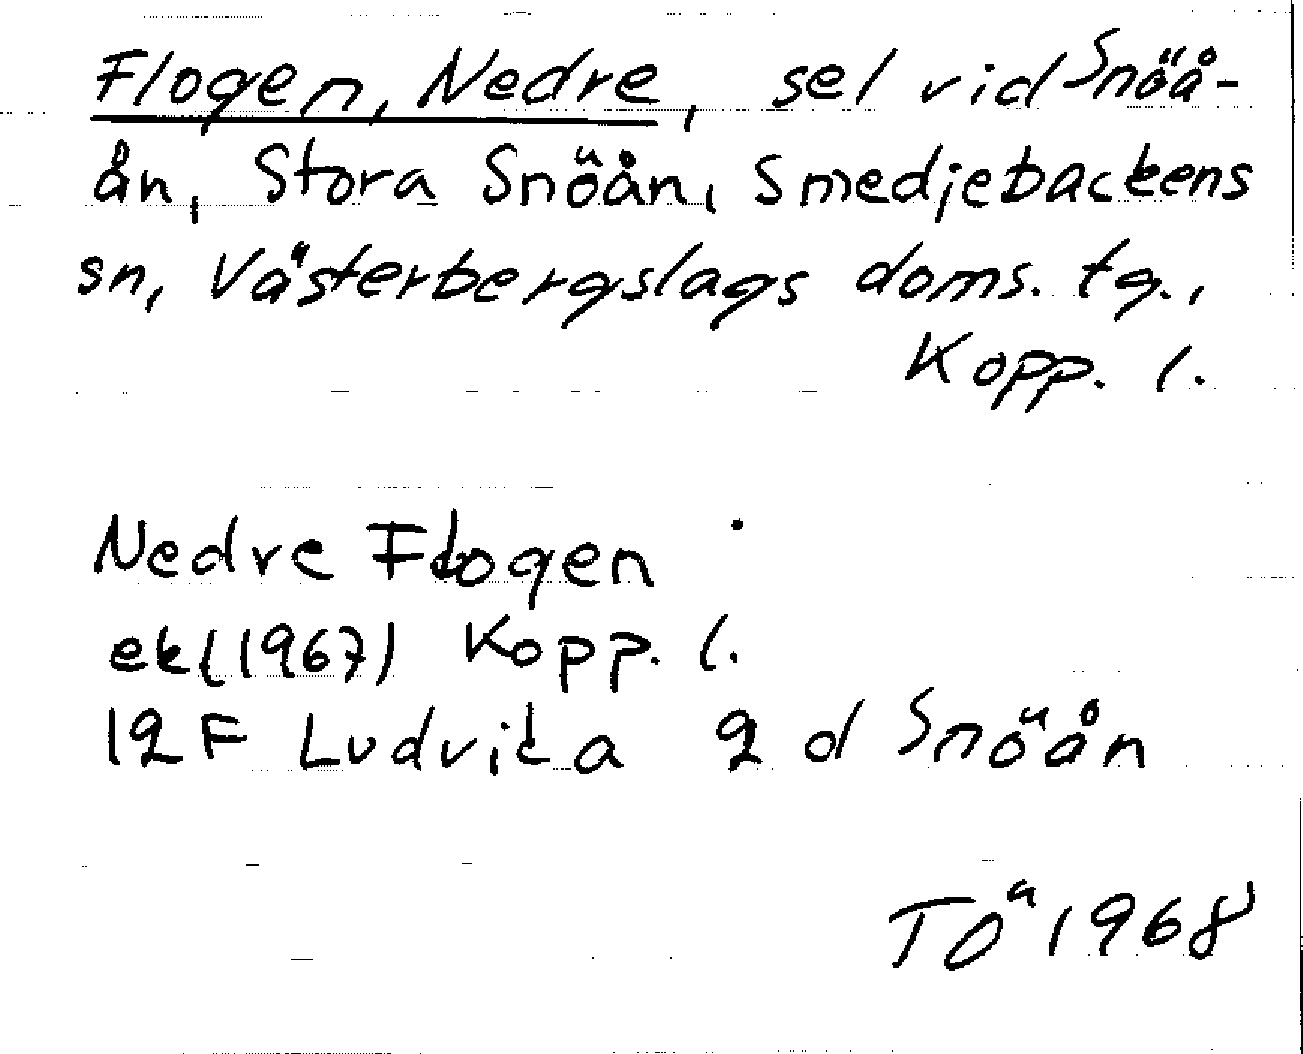 Flogen, Nedre, sel vid Snöå-
ån, Stora Snöån, Smedjebackens
sn, Västerbergslags doms. tg.,
Kopp. l.
Nedre Flogen
ek (1967) Kopp. l.
12F Ludvika 2 d Snöån
TÖ 1968